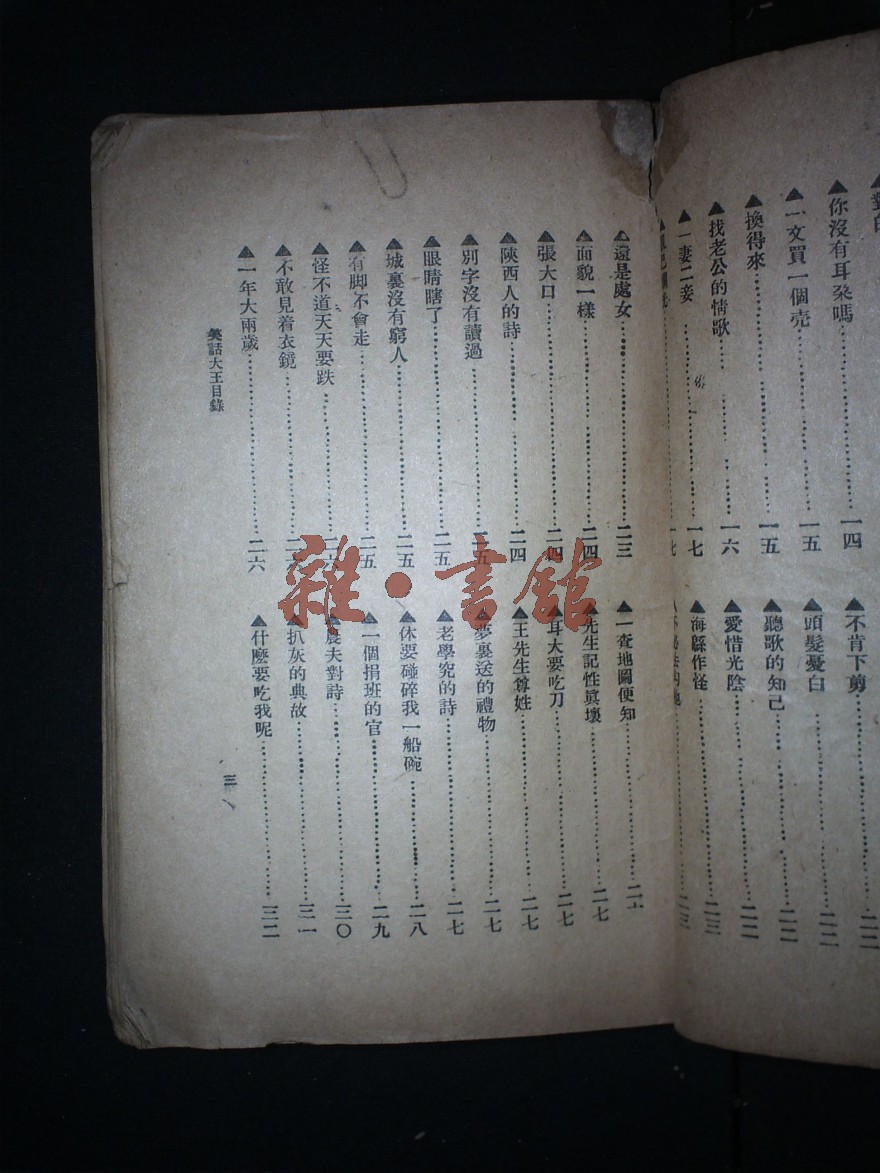 ▲你沒有耳朶嗎……一四
▲一文買一個壳……一五
▲換得來……一五
▲找老公的情歌……一六
▲一妻二妾……一七
一七
▲不肯下剪……二二
▲頭髮憂白……二二
▲聽歌的知己……二二
▲愛惜光陰……二二
▲海縣作怪……二三
二三
▲還是處女……二三
▲面貌一樣……二四
▲張大口……二四
▲陝西人的詩……二四
▲別字沒有讀過……二五
▲眼睛瞎了……二五
▲城裏沒有窮人……二五
▲有脚不會走……二五
▲怪不道天天要跌……二六
▲不敢見着衣鏡……二六
▲一年大兩歲……二六
▲一查地圖便知……二六
▲先生記性眞壞……二七
▲耳大要吃刀……二七
▲王先生尊姓……二七
▲夢裏送的禮物……二七
▲老學究的詩……二七
▲休要碰碎我一船碗……二八
▲一個捐班的官……二九
▲農夫對詩……三〇
▲扒灰的典故……三一
▲什麽要吃我呢……三二
笑話大王目錄
三
雜·書館